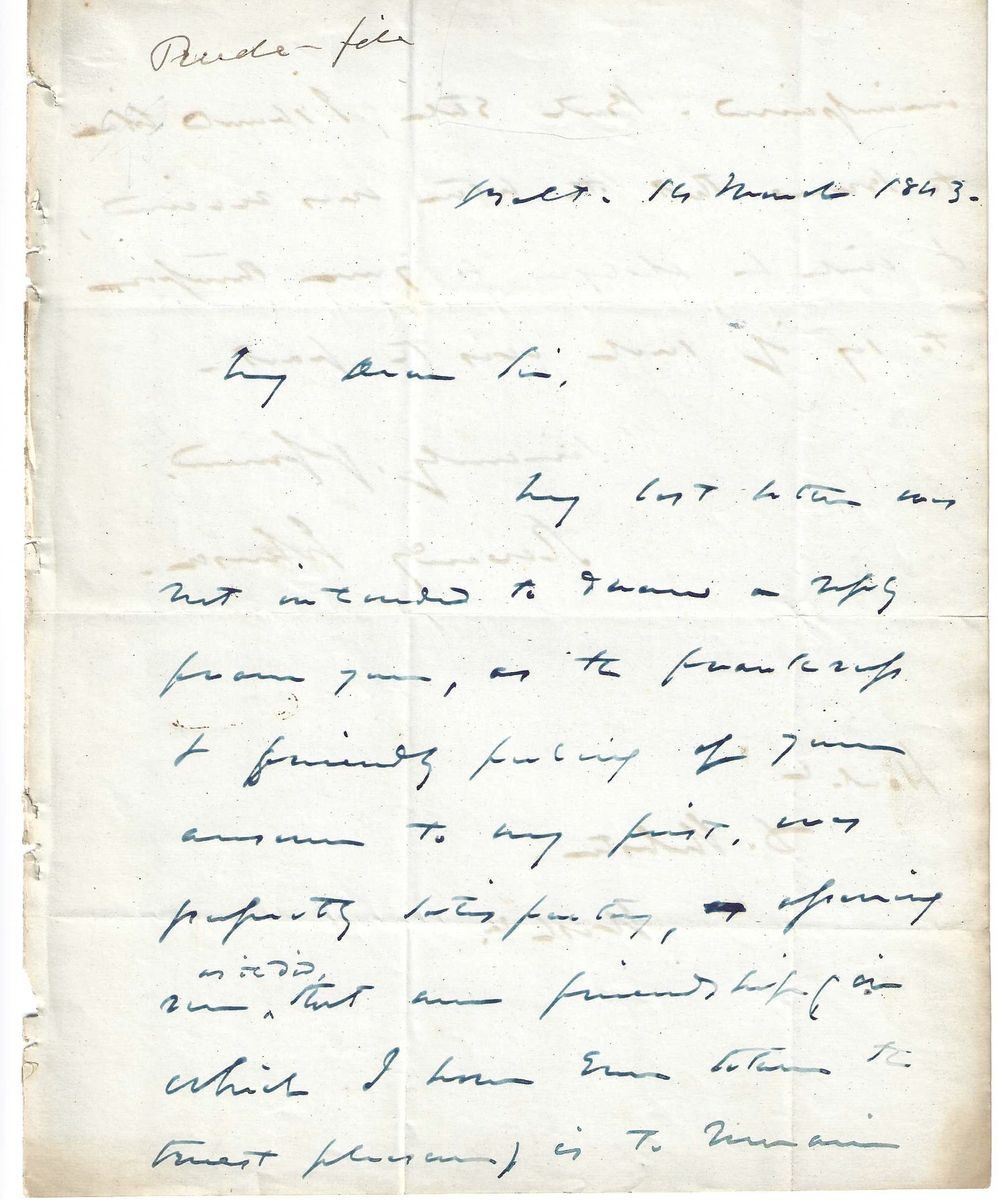 Balt. 14 March 1843.
My Dear Sir,
My last letter was
not intended to draw a reply
from you, as the frankness
& friendly feeling of your
answer to my first, was
perfectly satisfactory, assuring
me, as it did, that our friendship (in
which I have ever taken the
truest pleasure) is to remain